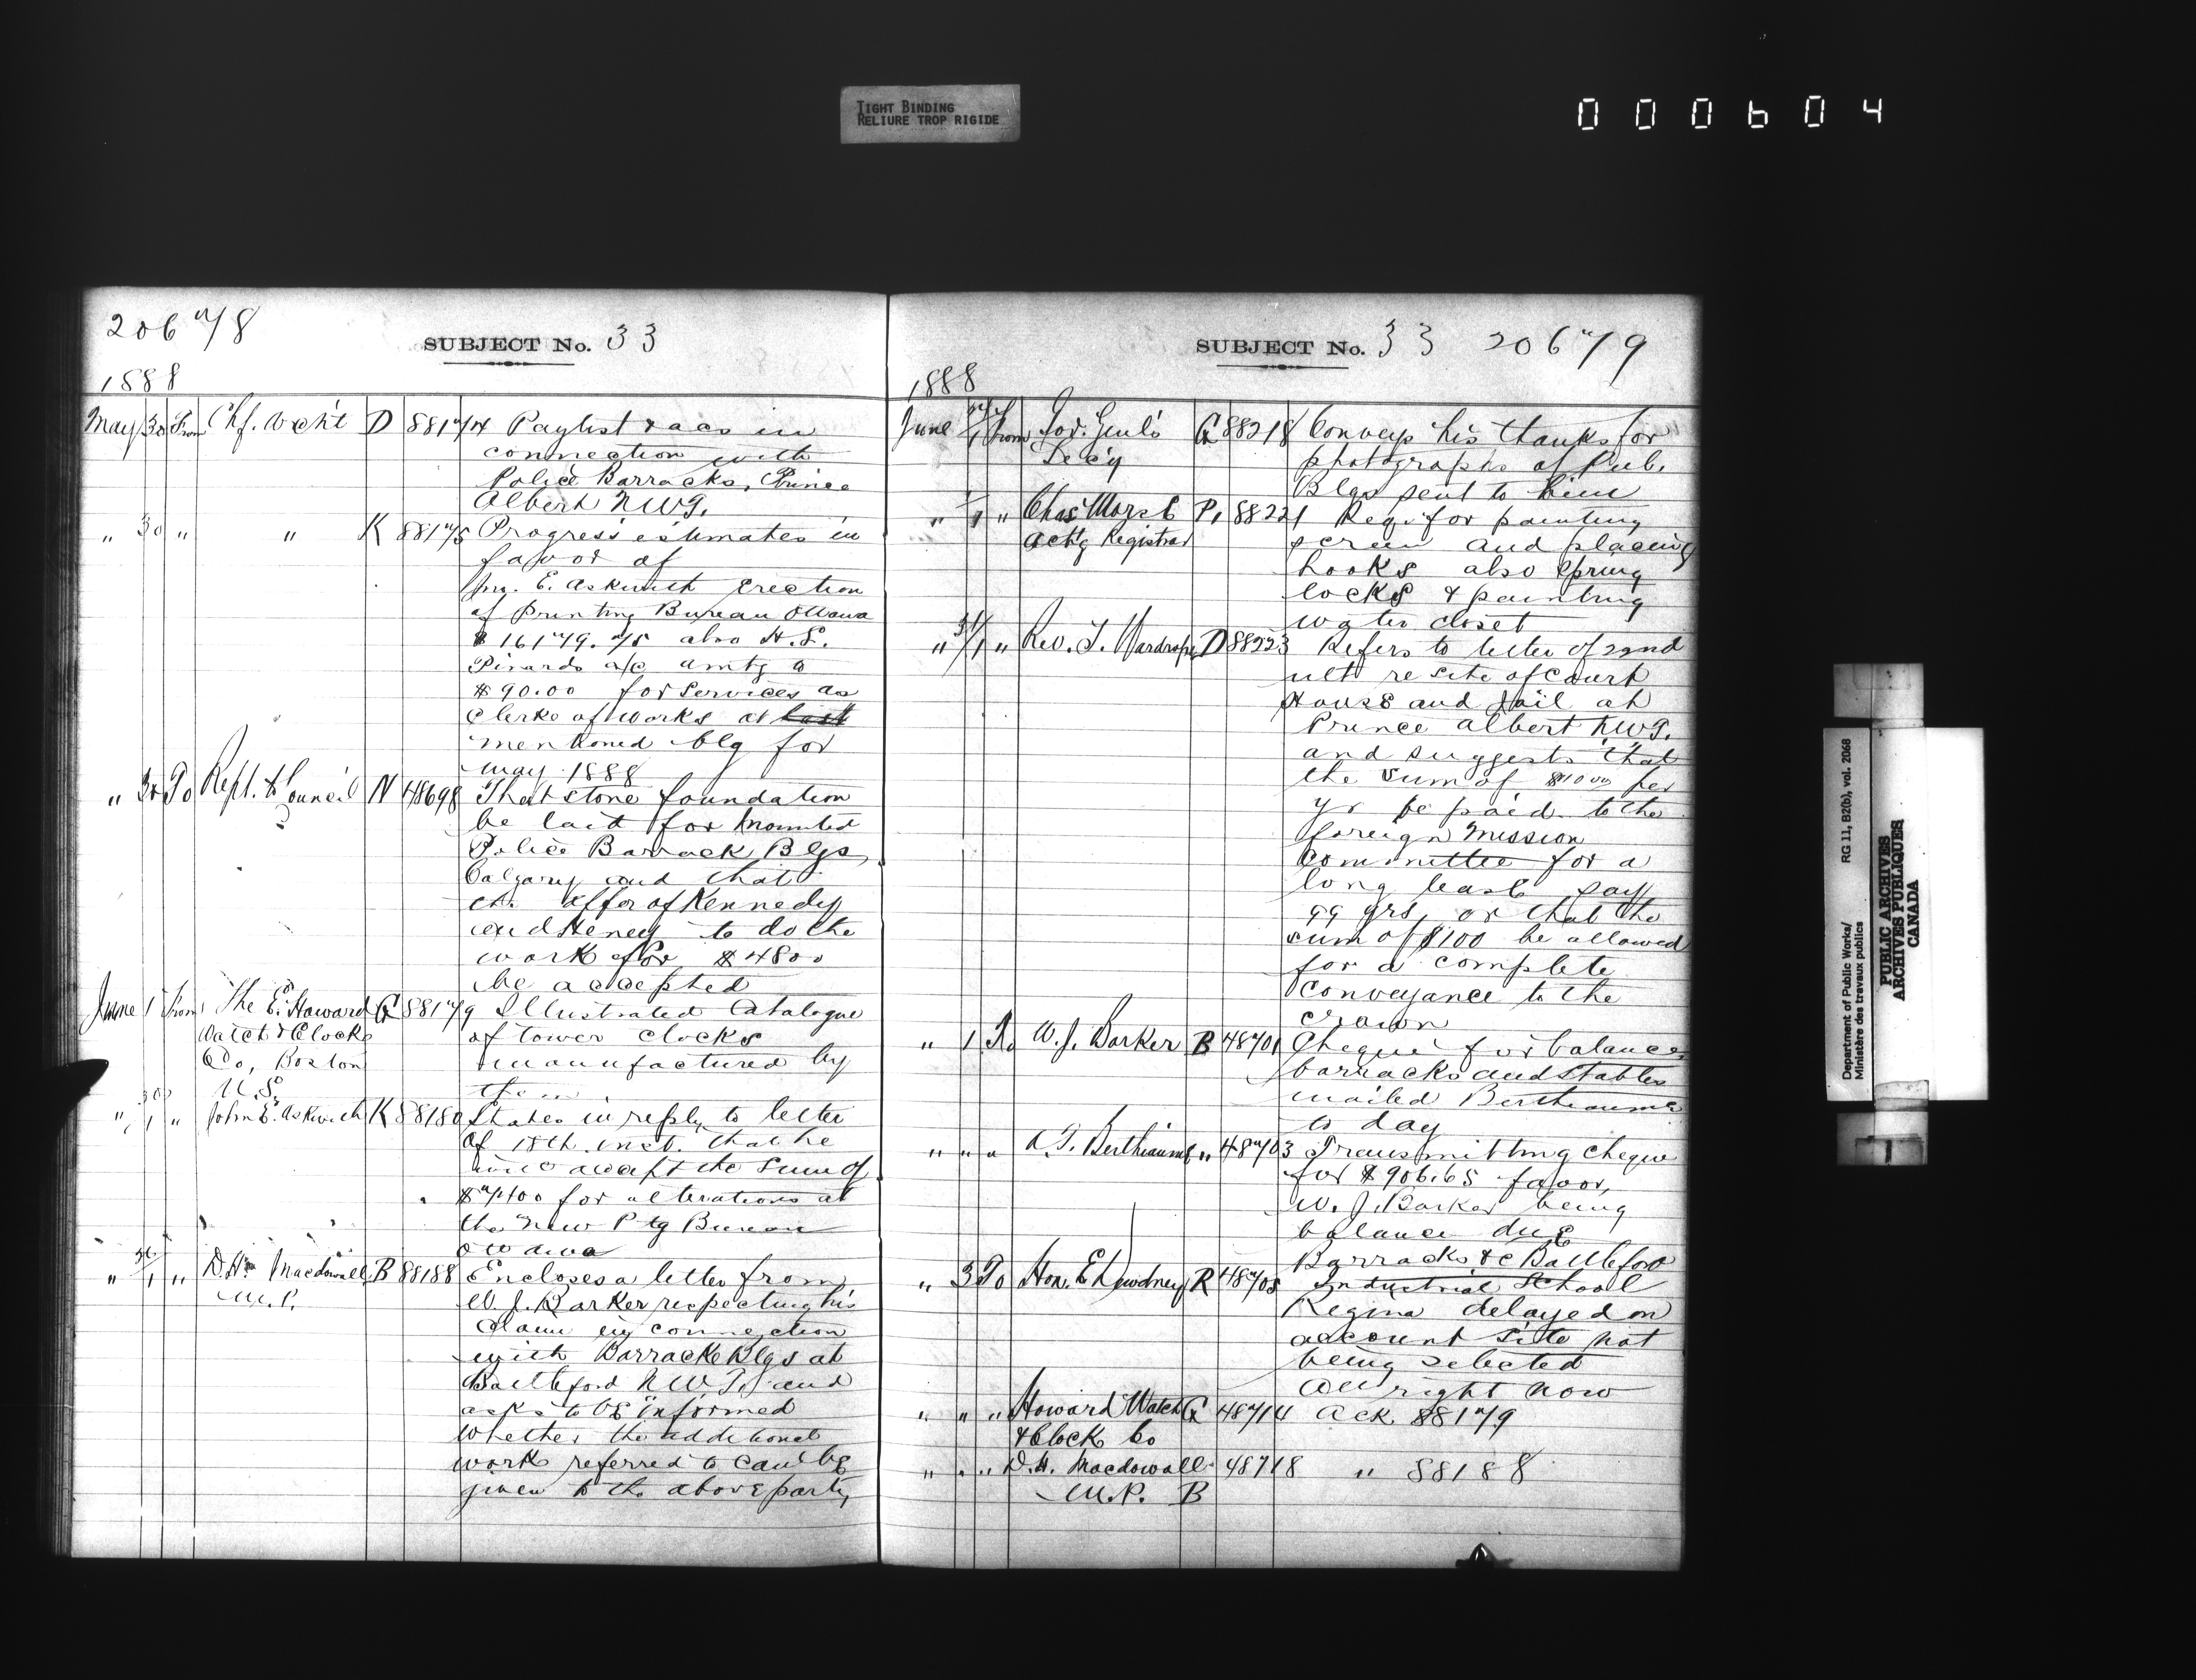 TIGHT BINDING
RELIURE TROP RIGIDE
000604
20678
SUBJECT No. 33
1888
May 30 From Chf. Archt D 88174 Paylist & accs in
connection with
Police Barracks, Prince
Albert N.W.T.
" 30 " " K 88175 Progress estimates in
favor of
Jno. E. Askwith erection
of Printing Bureau Ottawa
$16179.75 also H.S.
Pinards a/c amtg to
$90.00 for services as
Clerk of Works at last
mentioned blg for
May 1888
" 30 To Rept. to Council N 48698 That stone foundation
be laid for Mounted
Police Barrack Blgs,
Calgary and that
offer of Kennedy
and Heney to do the
work for $4800
be accepted
June 1 From The E. Howard G 88179 Illustrated Catalogue
Watch & Clock of tower clocks
Co, Boston manufactured by
U.S. them
" 30/1 " John E. Askwith K 88180 States in reply to letter
of 18th inst. that he
will accept the sum of
$7400 for alterations at
the new Ptg Bureau
Ottawa
" 31/1 " D.H. Macdowall B 88188 Encloses a letter from
M.P. W. J. Barker respecting his
claim in connection
with Barrack Blgs at
Battleford N.W.T. and
asks to be informed
whether the additional
work referred to can be
given to the above party
SUBJECT No. 33 20679
1888
June 1 From Gov. Genl's G 88218 Conveys his thanks for
Sec'y photographs of Pub.
Blgs sent to him
" 1 " Chas Morse P. 88221 Reqs for painting
Actg Registrar screen and placing
hooks also spring
locks & painting
water closet
" 31/1 " Rev. T. Wardrope D 88223 Refers to letter of 22nd
ult re site of Court
House and Jail at
Prince Albert N.W.T.
and suggests that
the sum of $10.00 per
yr be paid to the
foreign Mission
Committee for a
long lease say
99 yrs, or that the
sum of $100 be allowed
for a complete
conveyance to the
crown
" 1 To W. J. Barker B 48701 Cheque for balance
barracks and stables
mailed Bertheaume
to day
" " " Bertheaume " 48703 Transmitting cheque
for $906.65 favor,
W. J. Barker being
balance due
Barracks &c Battleford
" 3 To Hon. E Dewdney R 48705 Industrial School
Regina delayed on
account site not
being selected
All right now
" " " Howard Watch G 48714 Ack 88179
& Clock Co
" " " D.H. Macdowall 48718 " 88188
M.P. B
Department of Public Works/ RG 11, B2(b), vol. 2068
Ministère des travaux publics
PUBLIC ARCHIVES
ARCHIVES PUBLIQUES
CANADA